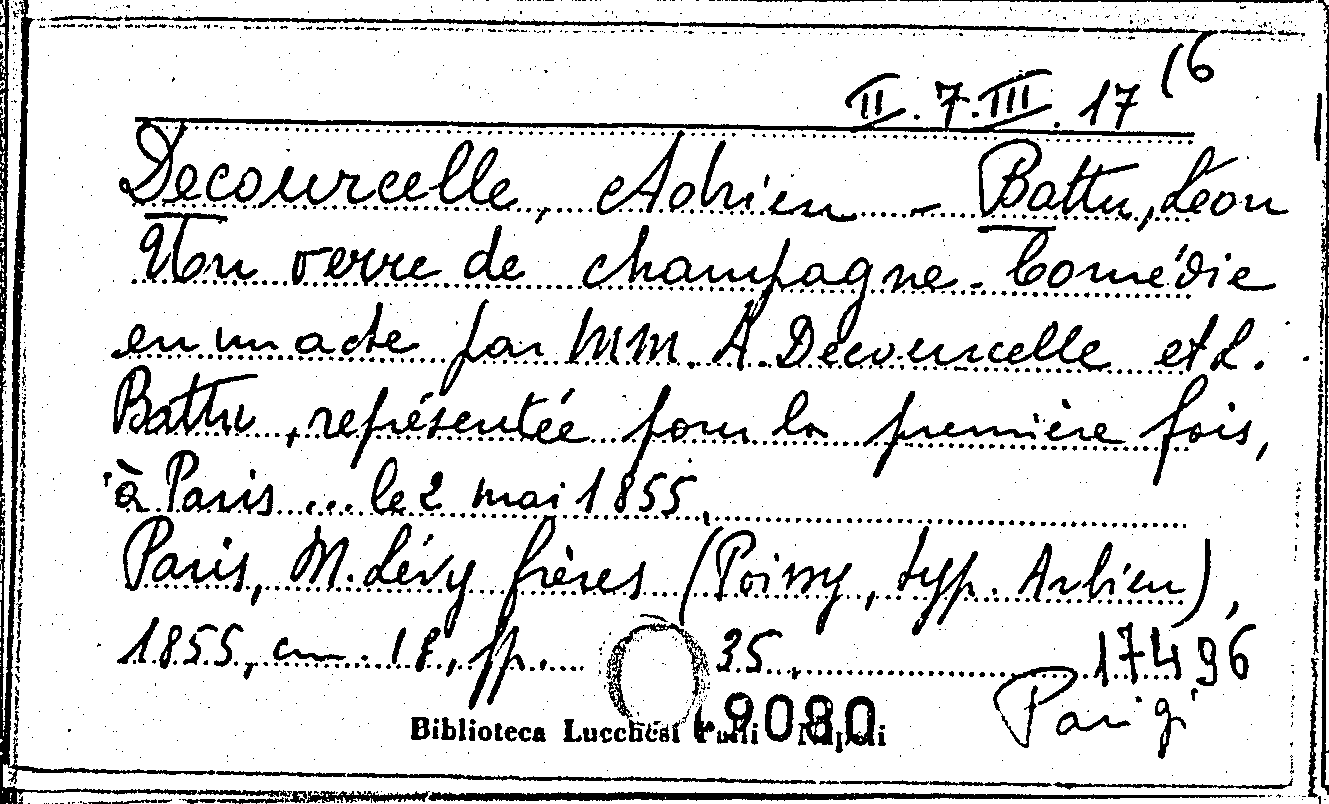 II.7.III.17 (6
Decourcelle, Adrien - Battu, Léon
Un verre de champagne. Comédie
en un acte par MM. A. Decourcelle et L.
Battu, représentée pour la première fois,
à Paris ... le 2 mai 1855.
Paris, M. Lévy frères (Poissy, typ. Arbieu),
1855, cm. 18, pp. 35. 17496
Parigi
Biblioteca Lucchesi Palli Napoli
19080